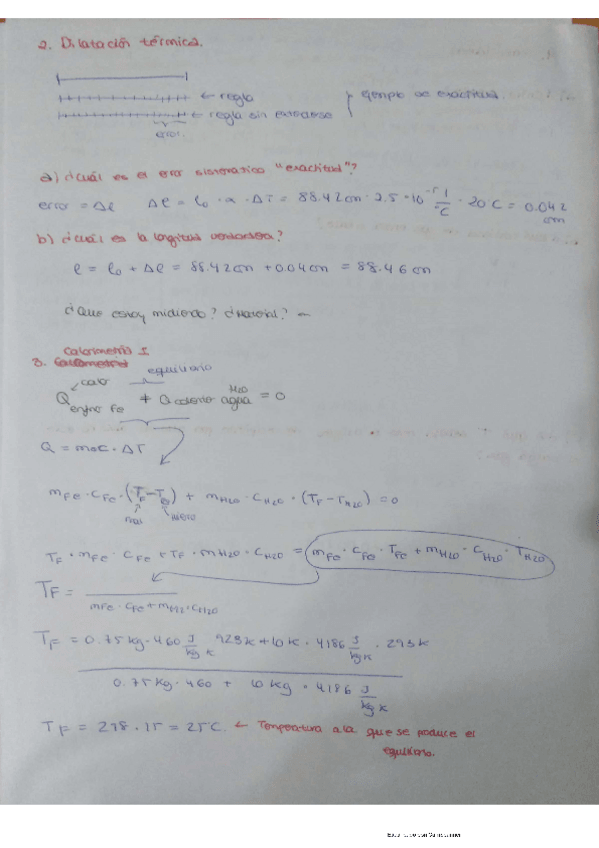 2. Dilatación térmica.
← regla
← regla sin extenderse
ejemplo de exactitud.
error.
a) ¿Cuál es el error sistemático "exactitud"?
error = Δl Δl = l₀ · α · ΔT = 88.42cm · 2.5 · 10⁻⁵ 1/°C · 20 C = 0.042 cm
b) ¿Cuál es la longitud verdadera?
l = l₀ + Δl = 88.42cm + 0.04cm = 88.46cm
¿Que estoy midiendo? ¿Material?
Calorimetría I
3.
calor equilibrio
Q entra Fe + Q H₂O agua = 0
Q = m·c · ΔT
m Fe · C Fe · (T_F - T) + m H₂O · C H₂O · (T_F - T H₂O) = 0
T_F · m Fe · C Fe + T_F · m H₂O · C H₂O = m Fe · C Fe · T Fe + m H₂O · C H₂O · T H₂O
T_F =
m Fe · C Fe + m H₂ · C H₂O
T_F = 0.75kg · 460 J/kg K 923K + 10K · 4186 J/kg K · 293K
0.75kg · 460 + 10kg · 4186 J/kg K
T_F = 298.15 = 25C. ← Temperatura a la que se produce el
equilibrio.